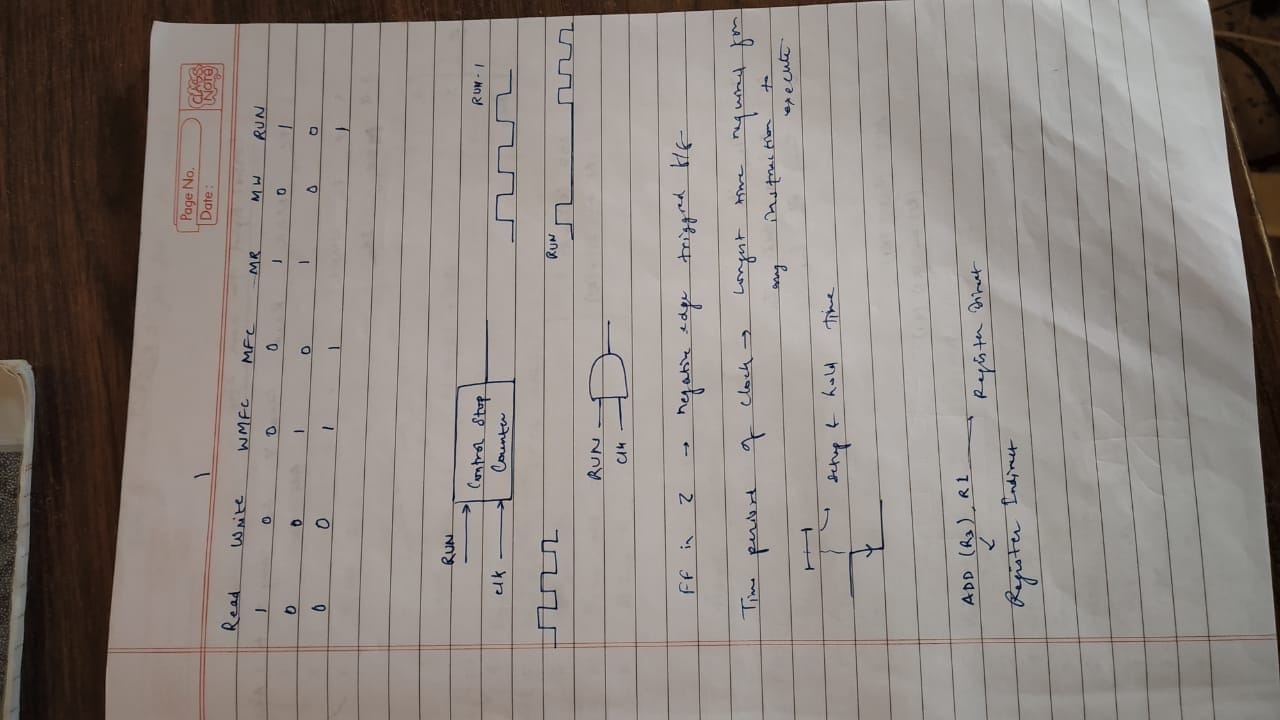 Page No.
Date :
CLASS NOTE
1
Read Write WMFC MFC MR MW RUN
1 0 0 0 1 0 1
0 0 1 0 1 0 0
0 0 1 1 1
RUN
Control Step
RUN-1
clk
Counter
RUN
RUN
clk
FF in Z → negative edge trigged f/f
Time period of clock → Longest time required for
any instruction to
execute
setup & hold time
ADD (R3), R1 → Register Direct
Register Indirect